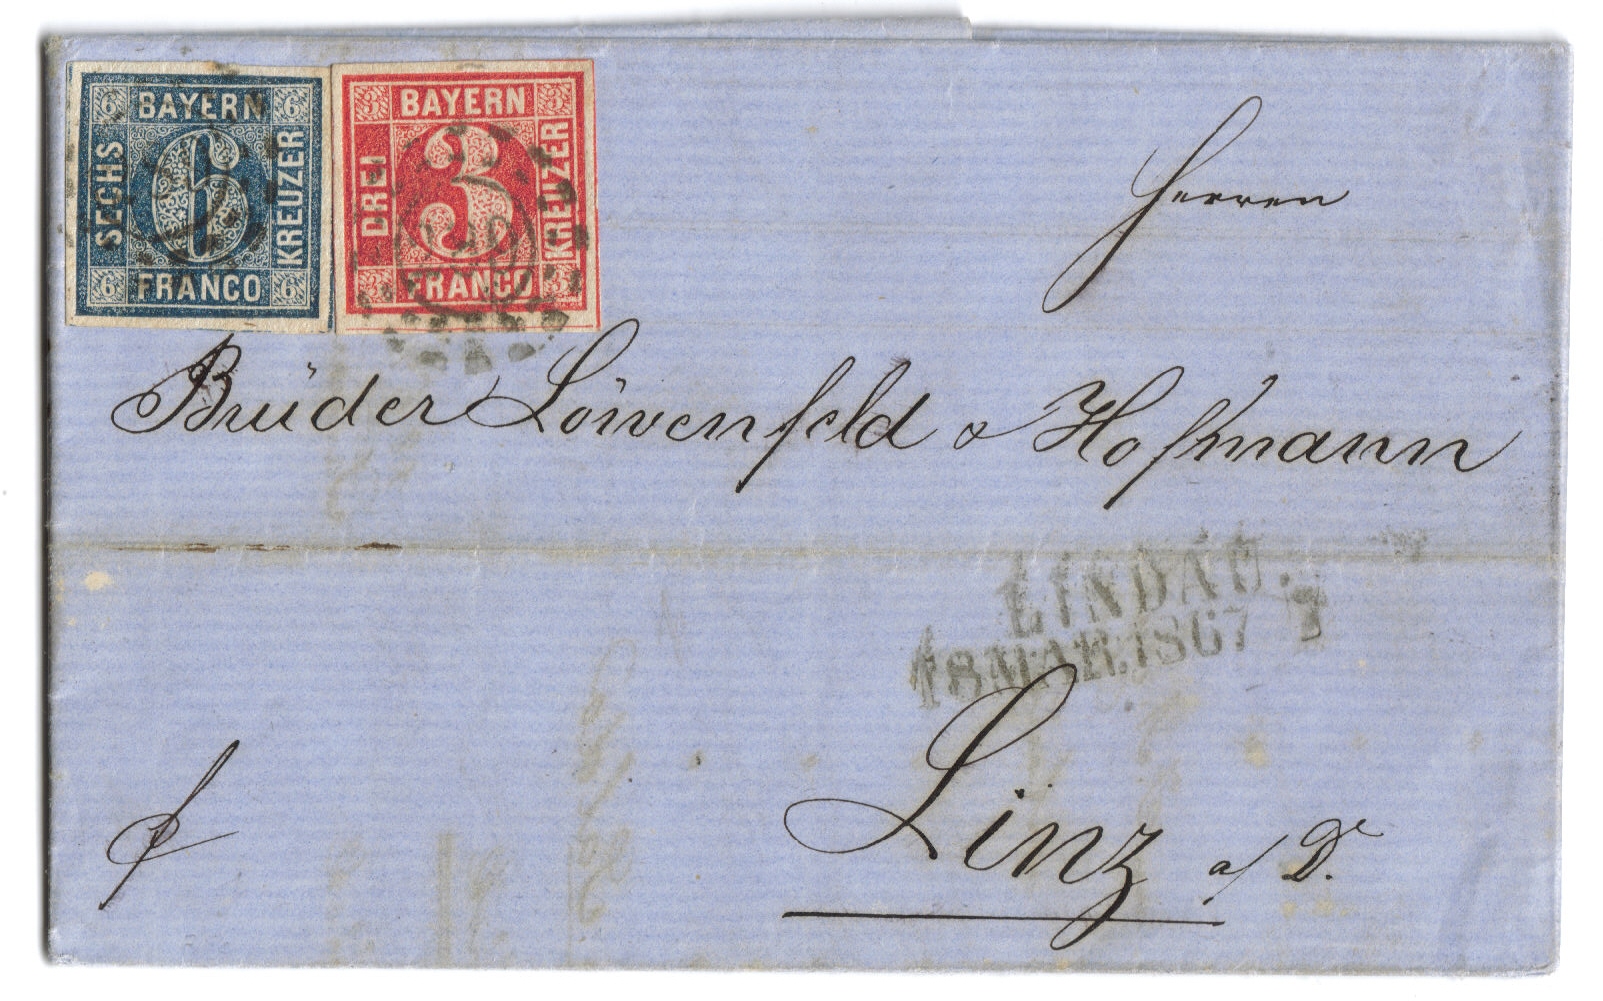 6 BAYERN 6
SECHS 6 KREUZER
6 FRANCO 6
3 BAYERN 3
DREI 3 KREUZER
3 FRANCO 3
Herren
Brüder Löwenfeld & Hofmann
LINDAU.
18 MAR. 1867
Linz a/ Dr.